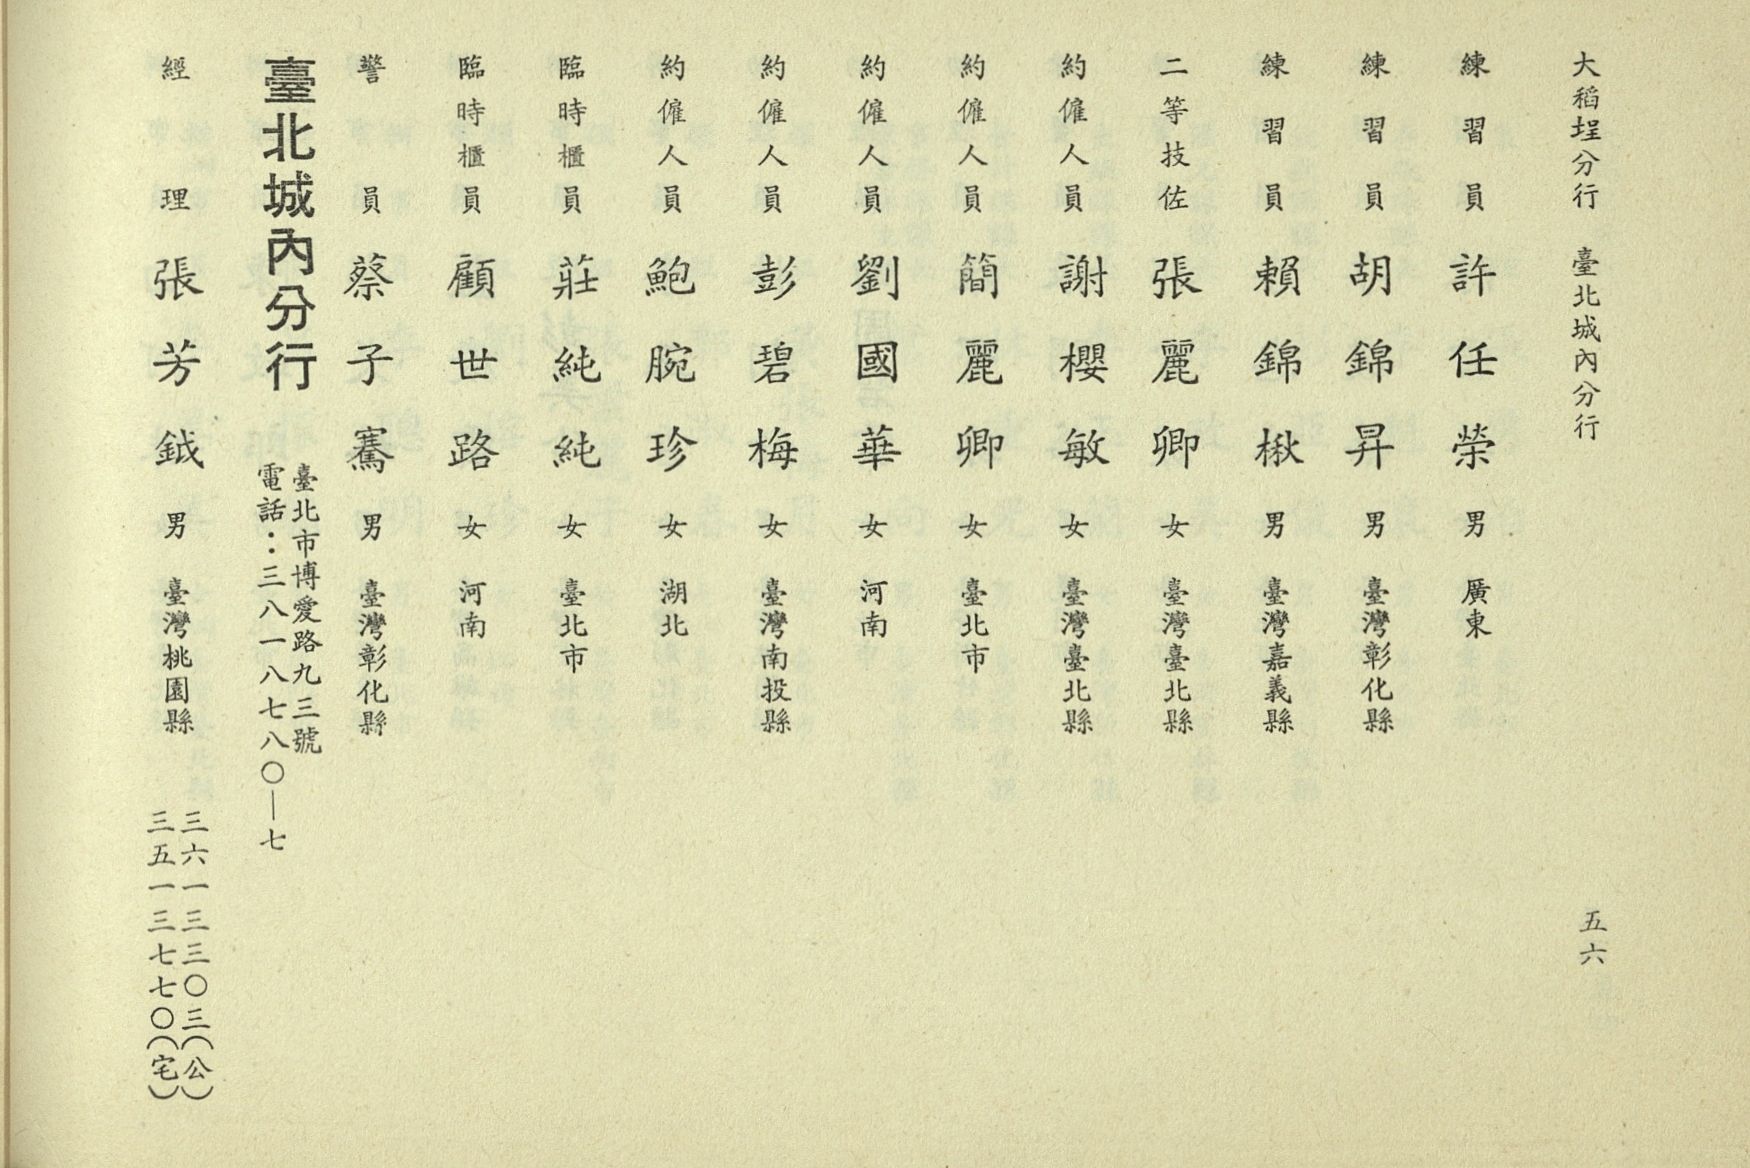 大稻埕分行　臺北城內分行　五六
練習員　許任榮　男　廣東
練習員　胡錦昇　男　臺灣彰化縣
練習員　賴錦楸　男　臺灣嘉義縣
二等技佐　張麗卿　女　臺灣臺北縣
約僱人員　謝櫻敏　女　臺灣臺北縣
約僱人員　簡麗卿　女　臺北市
約僱人員　劉國華　女　河南
約僱人員　彭碧梅　女　臺灣南投縣
約僱人員　鮑腕珍　女　湖北
臨時櫃員　莊純純　女　臺北市
臨時櫃員　顧世路　女　河南
警員　蔡子騫　男　臺灣彰化縣
臺北城內分行
臺北市博愛路九三號
電話：三八一八七八〇—七
經理　張芳鉞　男　臺灣桃園縣
三六一三三〇三（公）
三五一三七七〇（宅）